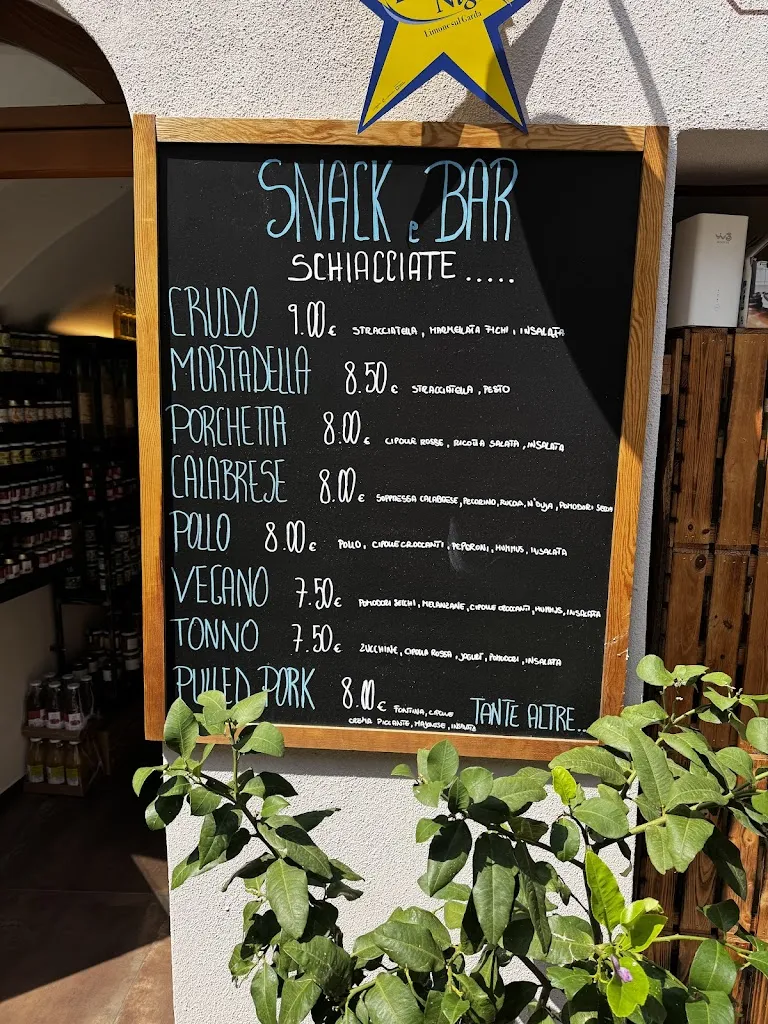 Limone sul Garda
SNACK e BAR
SCHIACCIATE.....
CRUDO 9.00 € STRACCIATELLA, MARMELATA FICHI, INSALATA
MORTADELLA 8.50 € STRACCIATELLA, PESTO
PORCHETTA 8.00 € CIPOLLE ROSSE, RICOTTA SALATA, INSALATA
CALABRESE 8.00 € SOPPRESSA CALABRESE, PECORINO, RUCOLA, N'DUJA, POMODORI SECCHI
POLLO 8.00 € POLLO, CIPOLLE CROCCANTI, PEPERONI, HUMMUS, INSALATA
VEGANO 7.50 € POMODORI SECCHI, MELANZANE, CIPOLLE CROCCANTI, HUMMUS, INSALATA
TONNO 7.50 € ZUCCHINE, CIPOLLA ROSSA, JOGURT, POMODORI, INSALATA
PULLED PORK 8.00 € FONTINA, CIPOLLE
CREMA PICCANTE, MAJONESE, INSALATA
TANTE ALTRE...